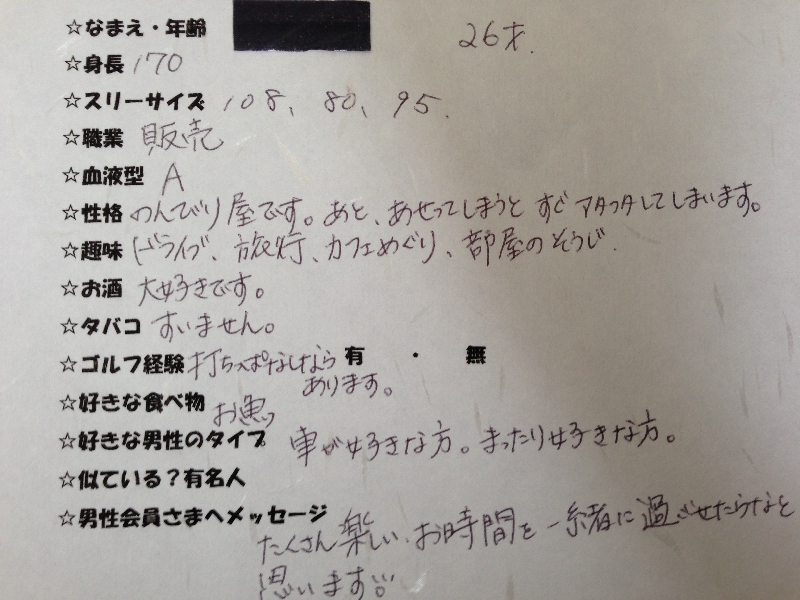 ☆なまえ・年齢 26才.
☆身長 170
☆スリーサイズ 108、80、95.
☆職業 販売
☆血液型 A
☆性格 のんびり屋です。あと、あせってしまうと すぐ アタフタしてしまいます。
☆趣味 ドライブ、旅行、カフェめぐり、部屋のそうじ.
☆お酒 大好きです。
☆タバコ すいません。
☆ゴルフ経験 打ちっぱなしなら 有 ・ 無
あります。
☆好きな食べ物 お魚
☆好きな男性のタイプ 車が好きな方。まったり好きな方。
☆似ている?有名人
☆男性会員さまへメッセージ
たくさん楽しい、お時間を一緒に過ごせたらなと
思います